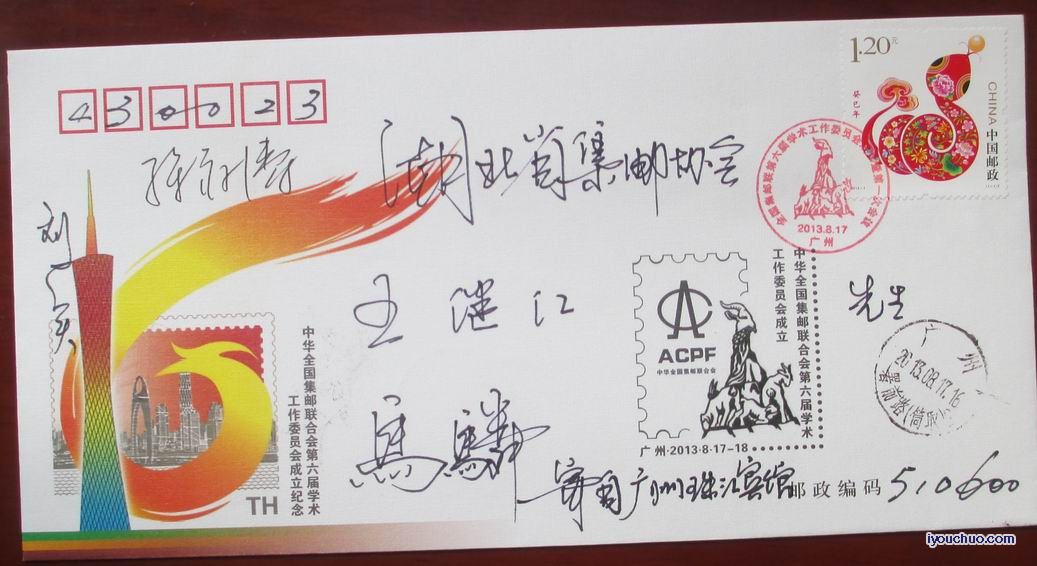 430023
湖北省集邮协会
王继江
先生
1.20元
癸巳年
CHINA
中国邮政
全国集邮联第六届学术工作委员会
第一次会议
2013.8.17
广州
中华全国集邮联合会第六届学术
工作委员会成立
ACPF
中华全国集邮联合会
广州·2013·8·17-18
广州
2013.08.17.16
中华全国集邮联合会第六届学术
工作委员会成立纪念
TH
寄自广州珠江宾馆
邮政编码 510600
iyouchuo.com